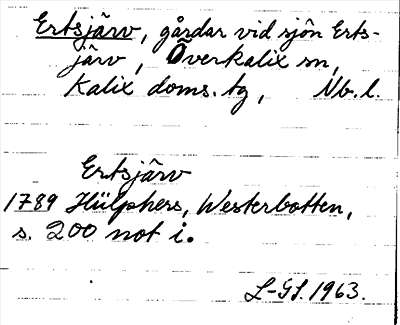 Ertsjärv, gårdar vid sjön Erts-
järv, Överkalix sn,
Kalix doms. tg, Nb. l.
Ertsjärv
1789 Hülphers, Westerbotten,
s. 200 not i.
L-GL. 1963.